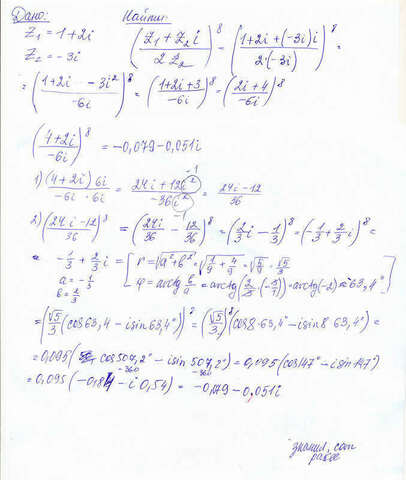 Дано: Найти:
Z₁ = 1+2i
Z₂ = -3i
((Z₁ + Z₂ i)/(2 Z₂))⁸ = ((1+2i+(-3i)i)/(2·(-3i)))⁸ =
= ((1+2i - -3i²)/(-6i))⁸ = ((1+2i+3)/(-6i))⁸ = ((2i+4)/(-6i))⁸
((4+2i)/(-6i))⁸ = -0,079-0,051i
1) ((4+2i)6i)/(-6i·6i) = (24i+12i²)/(-36i²) = (24i-12)/36
2) ((24i-12)/36)⁸ = (24i/36 - 12/36)⁸ = (2/3 i - 1/3)⁸ = (-1/3 + 2/3 i)⁸ =
= -1/3 + 2/3 i = [r = √(a²+b²) = √(1/9 + 4/9) = √(5/9) = √5/3
a = -1/3
b = 2/3
φ = arctg b/a = arctg(2/3·(-3/1)) = arctg(-2) ≈ 63,4°]
= (√5/3 (cos63,4 - isin63,4°))⁸ = (√5/3)⁸ (cos8·63,4° - isin8·63,4°) =
= 0,095(cos507,2° - isin507,2°) = 0,095(cos147° - isin147°)
-360 -360
= 0,095(-0,84 - i 0,54) = -0,079-0,051i
знания.com